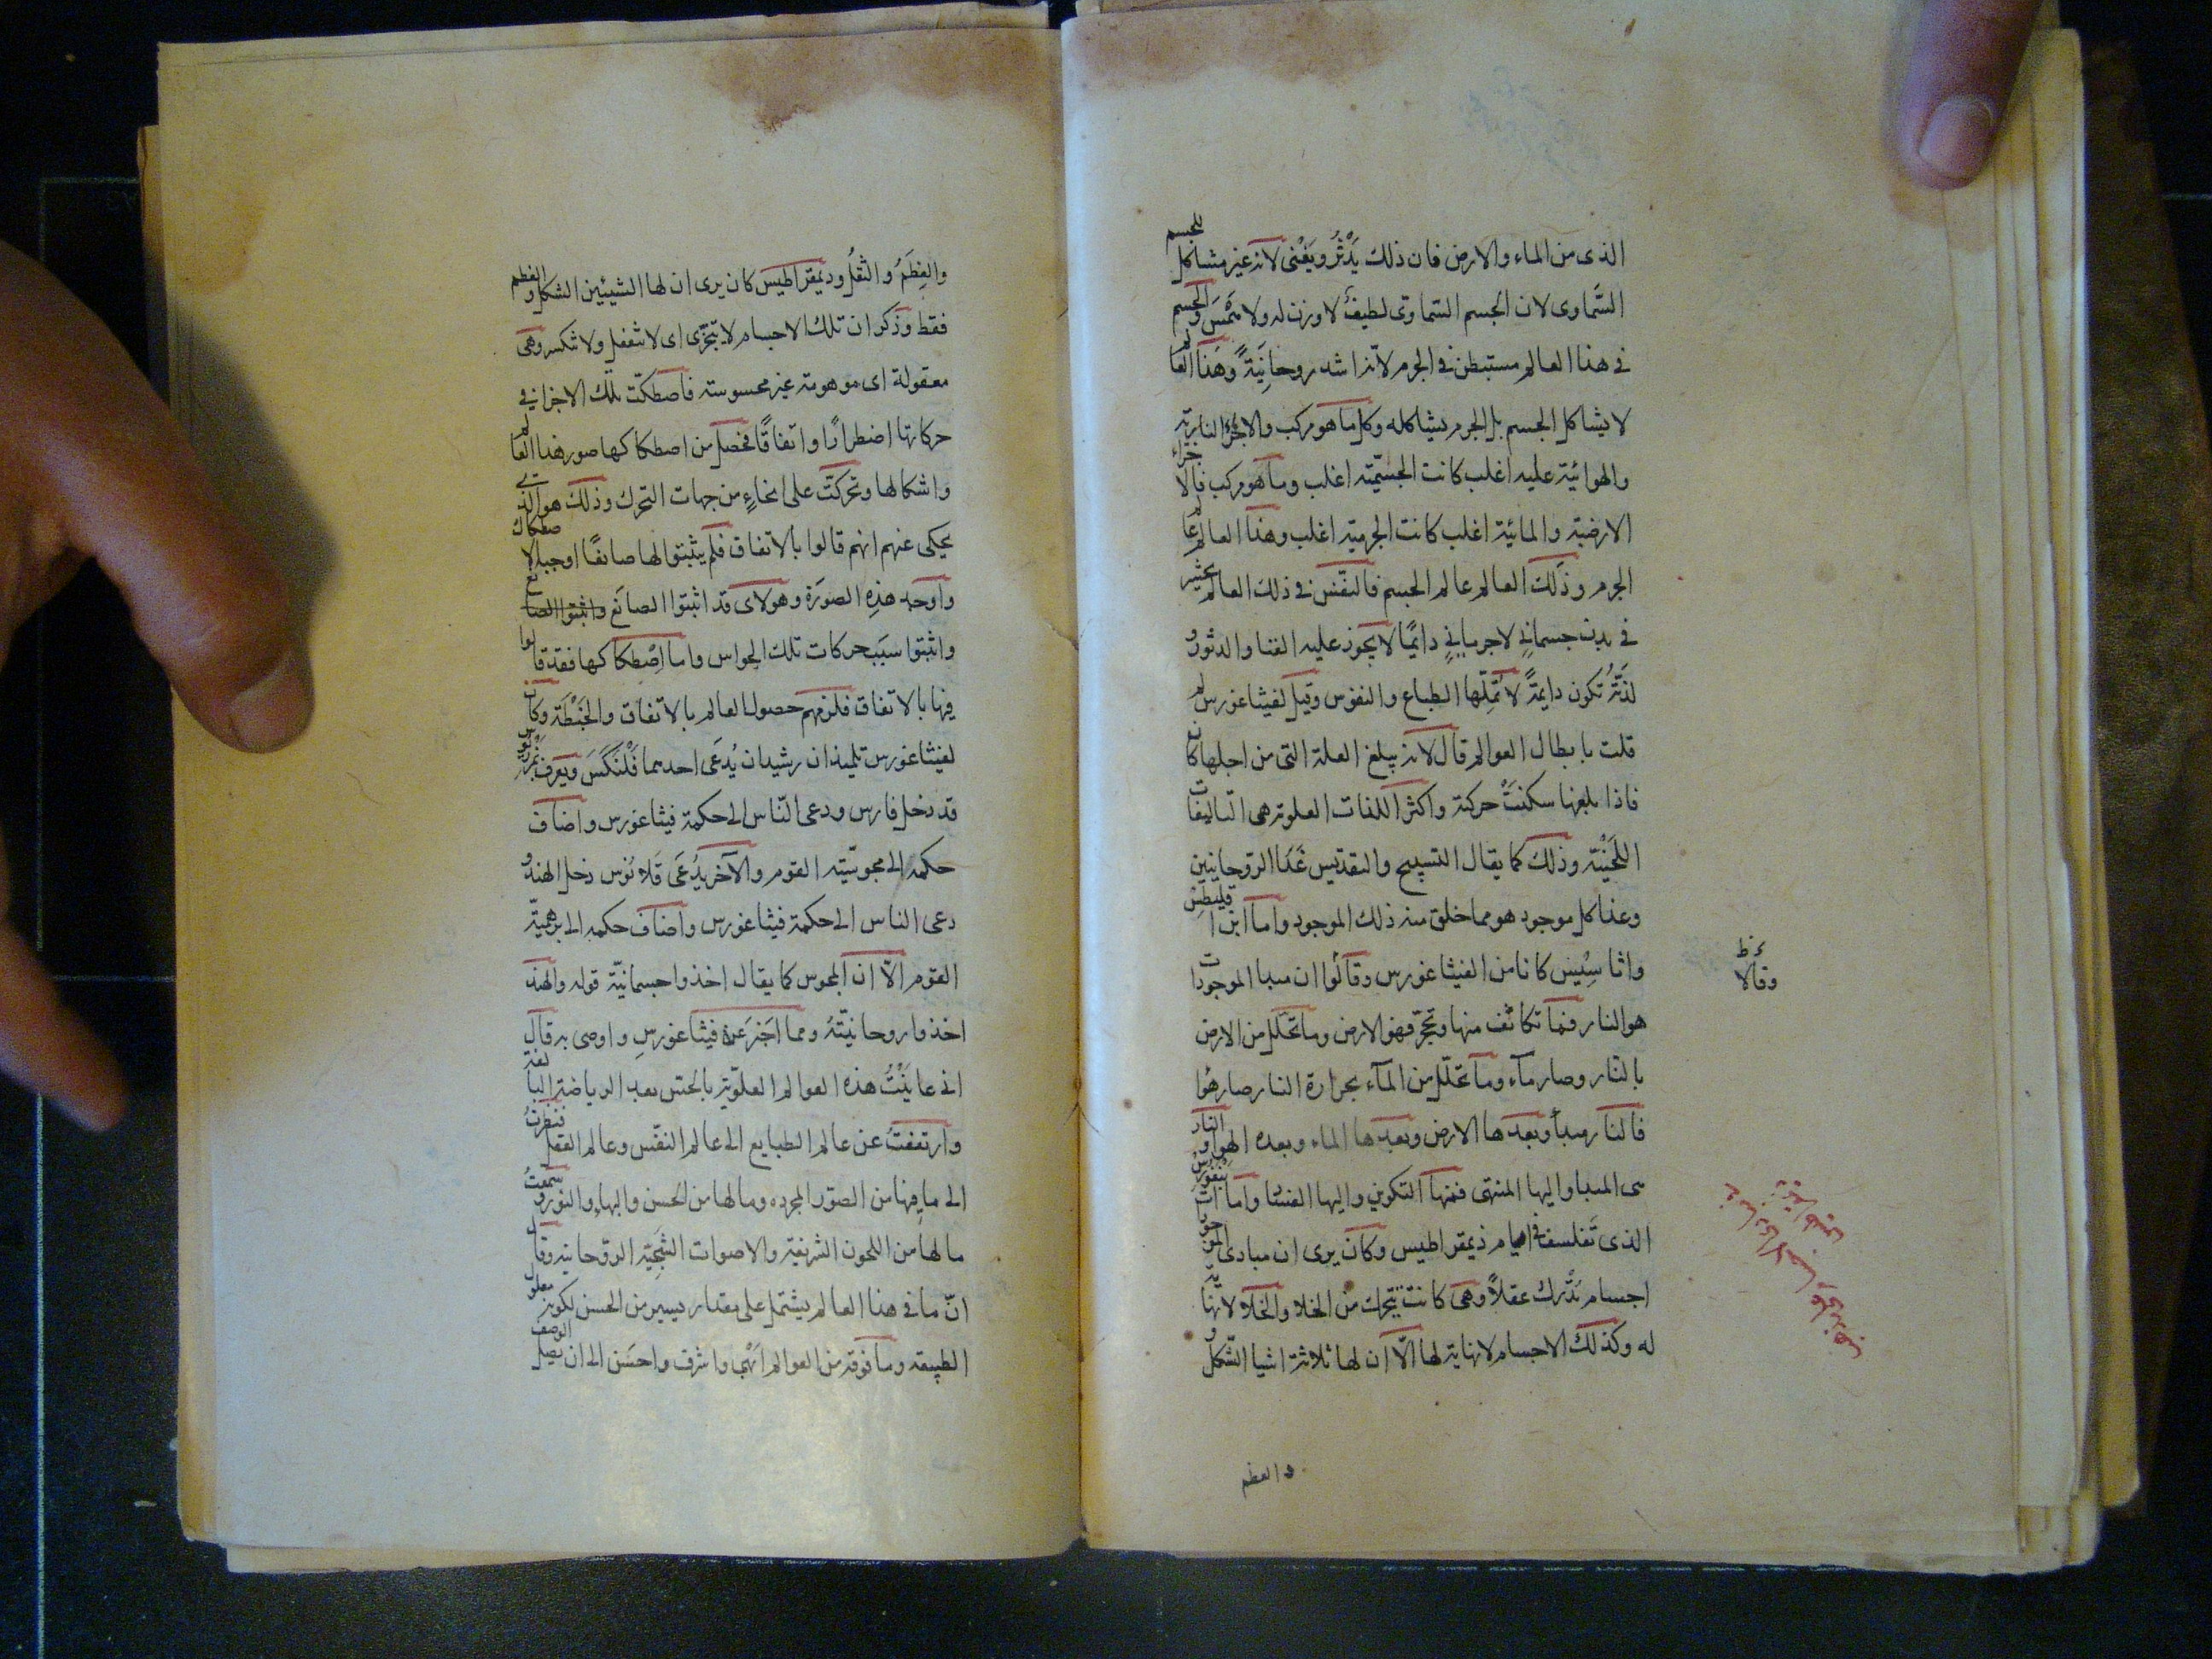 الذى من الماء والارض فان ذلك يَدْثُر ويَفْنى لانه غير مشاكل للجسم
السَّماوى لان الجسم السماوى لطيف لا وزن له ولا يُمَس والجسم
فى هذا العالم مستبطن فى الجرم لانه اشد روحانِيَّة وهَذا العالم
لا يشاكل الجسم بل الجرم يشاكله وكل ما هو مركب والاجزاء النارية
والهوائية عليه اغلب كانت الجسمية اغلب وما هو مركب فالاجزاء
الارضية والمائية اغلب كانت الجرمية اغلب وهذا العالم عالم
الجرم وذَلك العالم عالم الجسم فالنفس فى ذلك العالم تحشر
فى بدن جسمانى لا جرمانى دايمًا لا يجوز عليه الفنا والدثور و
لذَّتُه تكون دايمةً لا تملّها الطباع والنفوس وقيل لفيثاغورس لم
قلت بابطال العوالم قال لانه يبلغ العلة التى من اجلها كان
فاذا بلغها سكنَتْ حركته واكثر اللذات العلوية هى التاليفات
اللحنية وذلك كما يقال التسبيح والتقديس غذا الروحانيين
وغذا كل موجود هو مما خلق منه ذلك الموجود واما ابرا قليطس
واثا سِيس كانا من الفيثاغورس وقالوا ان مبدا الموجودات
هو النار فما تكاثف منها وتحجر فهو الارض وما تحلل من الارض
بالنار وصار مآء وما تحلّل من المآء بحرارة النار صار هوا
فالنار مبدأ وبعدها الارض وبعدها الماء وبعده الهوا و النار
هى المبدا واليها المنتهى فمنها التكوين واليها الفنا واما
الذى تفلسف فى ايام ذيمقراطيس وكان يرى ان مبادى الموجود
اجسام تدرك عقلاً وهى كانت تتحرك من الخلا والخلاء لا نهاية
له وكذلك الاجسام لا نهاية لها الّا ان لها ثلاثة اشيا الشكل و
وقالا
والعظم
والعِظَمُ والثقلُ وديمقراطيس كان يرى ان لها الشيئين الشكل والعظم
فقط وذكر ان تلك الاجسام لا تتجزى اى لا تنفعل ولا تنكسر وهى
معقولة اى موهومة غير محسوسة فاصطكّت تلك الاجزا فى
حركاتها اضطرارًا واتفاقًا فحصل من اصطكاكها صور هذا العالم
واشكالها وتحركت على انحاءٍ من جهات التحرك وذلك هو الذى
يحكى عنهم انهم قالوا بالاتفاق فلم يثبتوا لها صانعًا اوجب الاصطكاك
واوجد هذه الصورة وهولاى قد اثبتوا الصانع واثبتوا الصانع
واثبتوا سبب حركات تلك الجواس واما اصطكاكها فقد قالوا
فيها بالاتفاق فلزمهم حصول العالم بالاتفاق والخبطة وكان
لفيثاغورس تلميذان رشيدان يُدعَى احدهما فَلَنكَسَ ويعرف بمرزنوس
قد دخل فارس ودعى الناس الى حكمة فيثاغورس واضاف
حكمه الى مجوسية القوم والآخر يدعى قَلانُوس دخل الهند و
دعى الناس الى حكمة فيثاغورس واضاف حكمه الى برهمية
القوم الّا ان المجوس كما يقال اخذوا جسمانية قوله والهند
اخذوا روحانيته ومما اخبر عنه فيثاغورس واوصى به قال
انى عاينْتُ هذه العوالم العلوية بالحس بعد الرياضة البالغة
وارتفعتُ عن عالم الطبايع الى عالم النفس وعالم العقل فنظرتُ
الى ما فيها من الصور المجرده وما لها من الحسن والبهاء والنور و سمعتُ
ما لها من اللحون الشريفة والاصوات الشجية الروحانية وقال
انّ ما فى هذا العالم يشتمل على مقدار يسير من الحسن لكونه معلول
الطبيعة وما فوقه من العوالم ابْهى واشرف واحسَن الى ان يصل الوصف